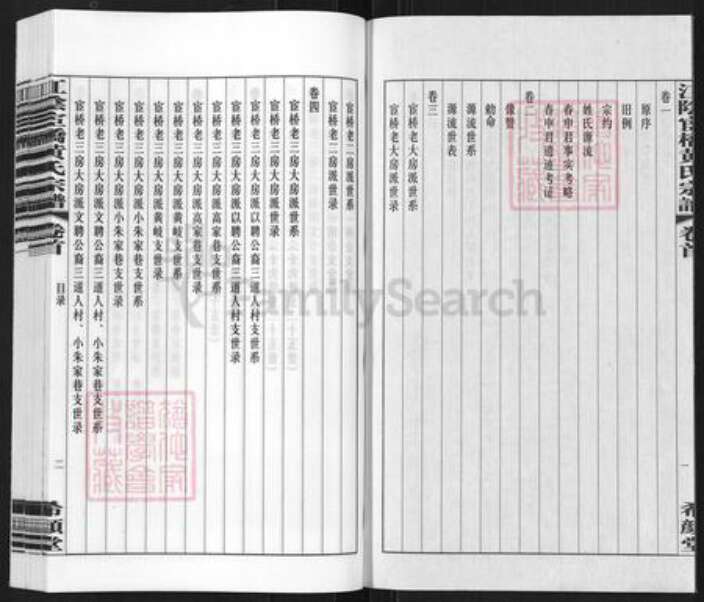 江阴官桥黄氏宗谱 卷首
一
希颜堂
卷一
原序
旧例
宗约
姓氏源流
春申君事实考略
春申君遗迹考证
卷二
像赞
敕命
源流世系
源流世表
卷三
官桥老大房派世系
官桥老大房派世录
官桥老二房派世系
官桥老二房派世录
卷四
官桥老三房大房派世系
官桥老三房大房派世录
官桥老三房大房派以聘公裔三道人村支世系
官桥老三房大房派以聘公裔三道人村支世录
官桥老三房大房派高家巷支世系
官桥老三房大房派高家巷支世录
官桥老三房大房派黄岐支世系
官桥老三房大房派黄岐支世录
官桥老三房大房派小朱家巷支世系
官桥老三房大房派小朱家巷支世录
官桥老三房大房派文聘公裔三道人村、小朱家巷支世系
官桥老三房大房派文聘公裔三道人村、小朱家巷支世录
江阴官桥黄氏宗谱 卷首
目录
二
希颜堂
FamilySearch